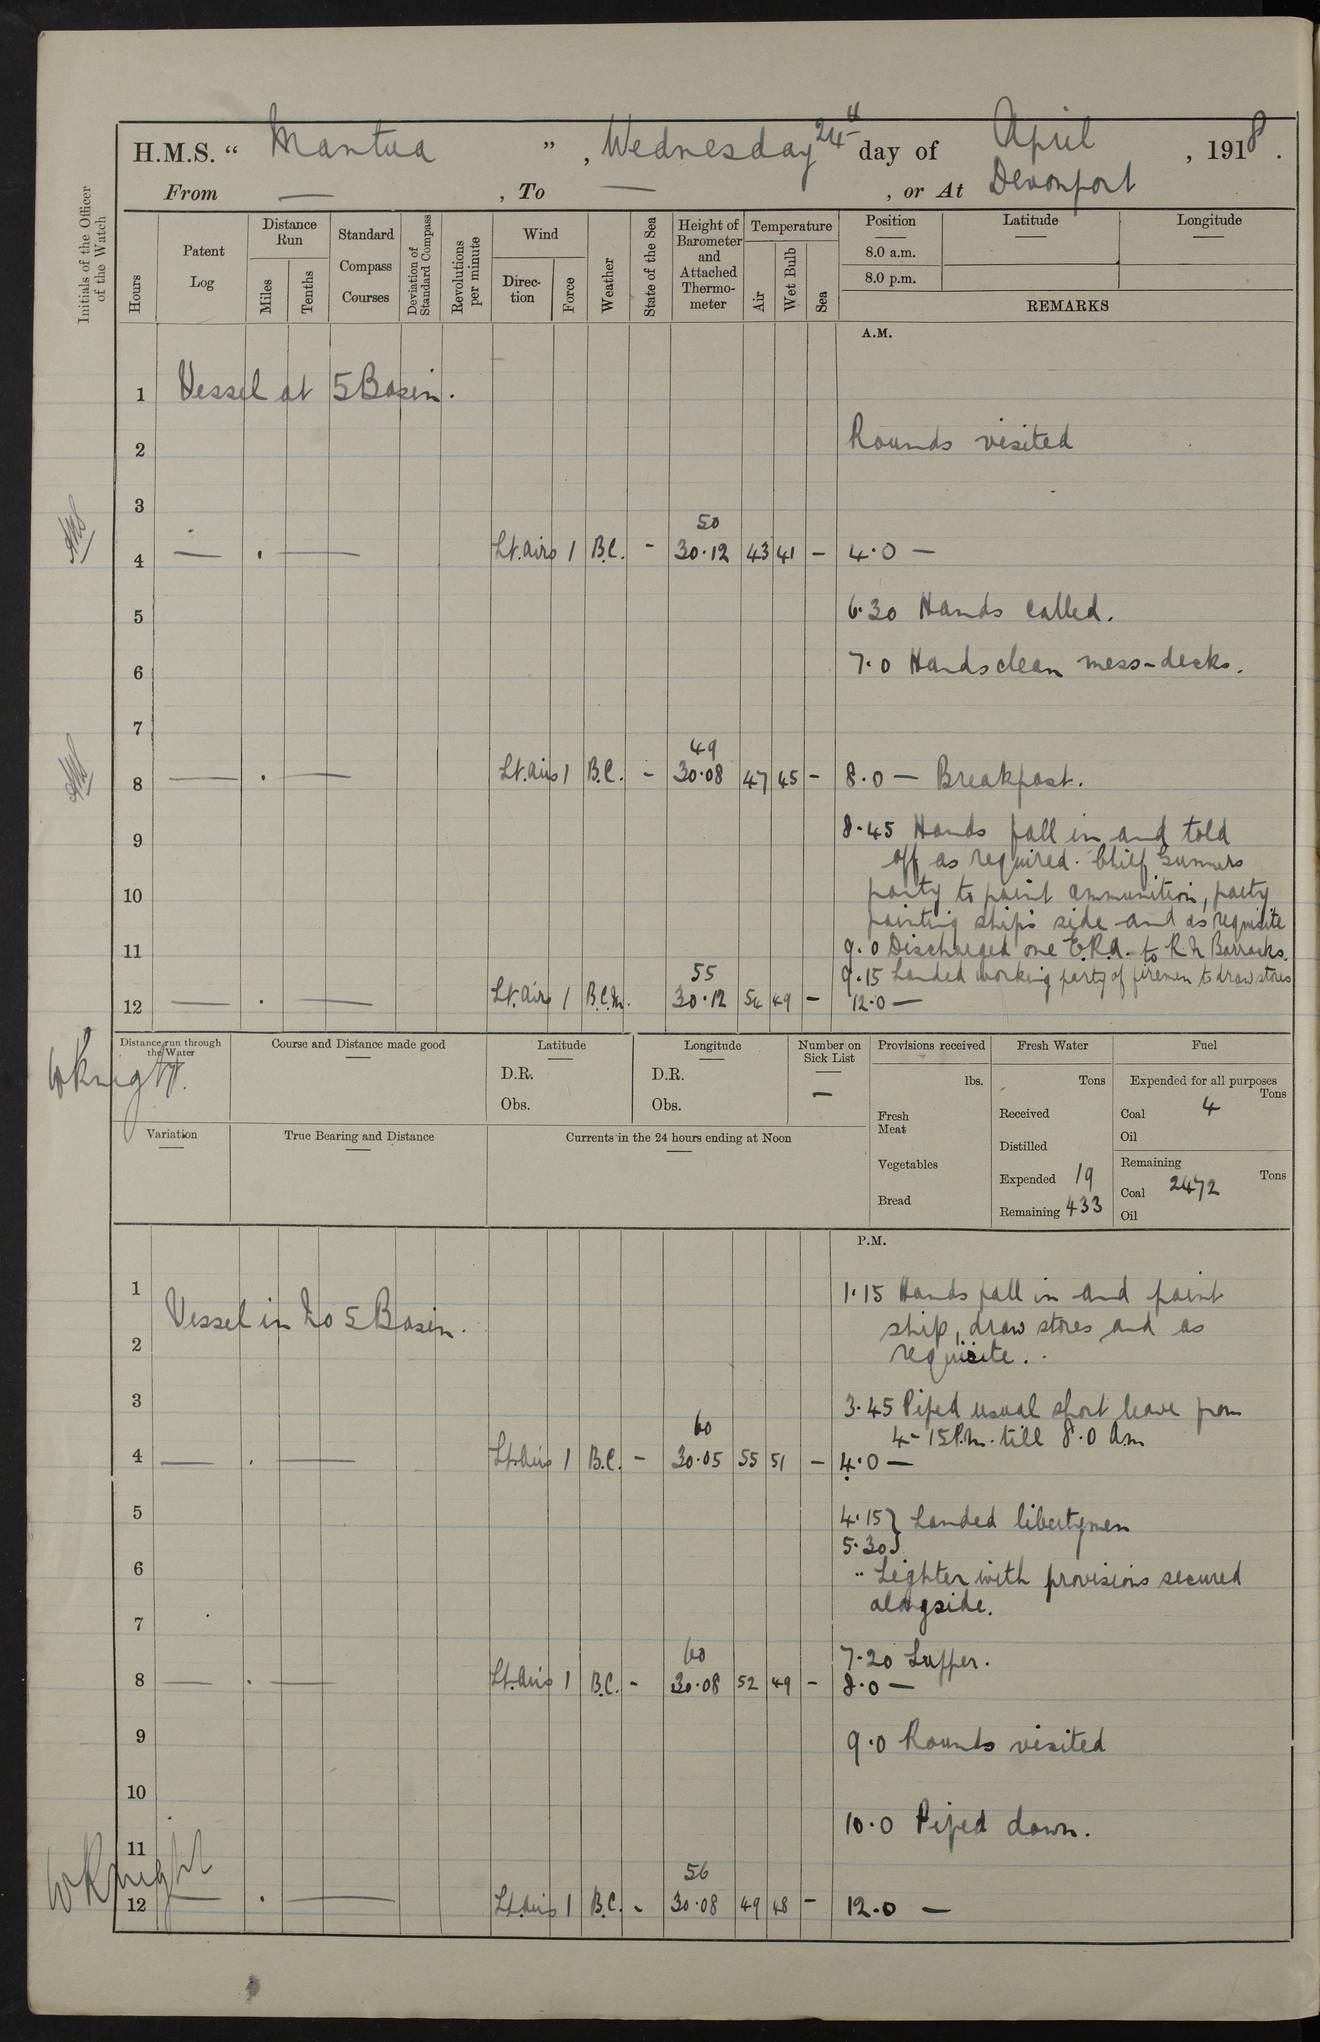 H.M.S. “ Mantua ” , Wednesday 24th day of April , 1918 .
From — , To — , or At Devonport
Initials of the Officer of the Watch
Hours
Patent Log
Distance Run
Miles
Tenths
Standard Compass Courses
Deviation of Standard Compass
Revolutions per minute
Wind
Direc-tion
Force
Weather
State of the Sea
Height of Barometer and Attached Thermo-meter
Temperature
Air
Wet Bulb
Sea
Position Latitude Longitude
8.0 a.m.
8.0 p.m.
REMARKS
A.M.
1 Vessel at 5 Basin.
2 Rounds visited
3
50
4 — . — Lt. airs 1 B.C. - 30.12 43 41 — 4.0 —
5 6.30 Hands called.
6 7.0 Hands clean mess-decks.
7
49
8 — . — Lt. airs 1 B.C. - 30.08 47 45 — 8.0 — Breakfast.
9 8.45 Hands fall in and told
off as required. Chief Gunners
10 party to paint ammunition, party
painting ship's side and as requisite
11 9.0 Discharged one E.R.A. to R.N Barracks.
55
9.15 Landed working party of firemen to draw stores
12 — . — Lt. airs 1 B.C.M. 30.12 54 49 — 12.0 —
WKnight.
Distance run through the Water
Course and Distance made good
Latitude
D.R.
Obs.
Longitude
D.R.
Obs.
Number on Sick List
—
Provisions received
lbs.
Fresh Meat
Vegetables
Bread
Fresh Water
Tons
Received
Distilled
Expended 19
Remaining 433
Fuel
Expended for all purposes
Tons
Coal 4
Oil
Remaining
Tons
Coal 2472
Oil
Variation
True Bearing and Distance
Currents in the 24 hours ending at Noon
P.M.
1 1.15 Hands fall in and paint
Vessel in No 5 Basin. ship, draw stores and as
2 requisite.
3 3.45 Piped usual short leave from
60
4-15P.m. till 8.0 a.m
4 — . — Lt. airs 1 B.C. - 30.05 55 51 — 4.0 —
5 4.15} Landed libertymen
5.30}
6 " Lighter with provisions secured
alongside.
7
60
7.20 Supper.
8 — . — Lt. airs 1 B.C. - 30.08 52 49 — 8.0 —
9 9.0 Rounds visited
10
10.0 Piped down.
11
56
WKnight
12 — . — Lt. airs 1 B.C. - 30.08 49 48 - 12.0 —